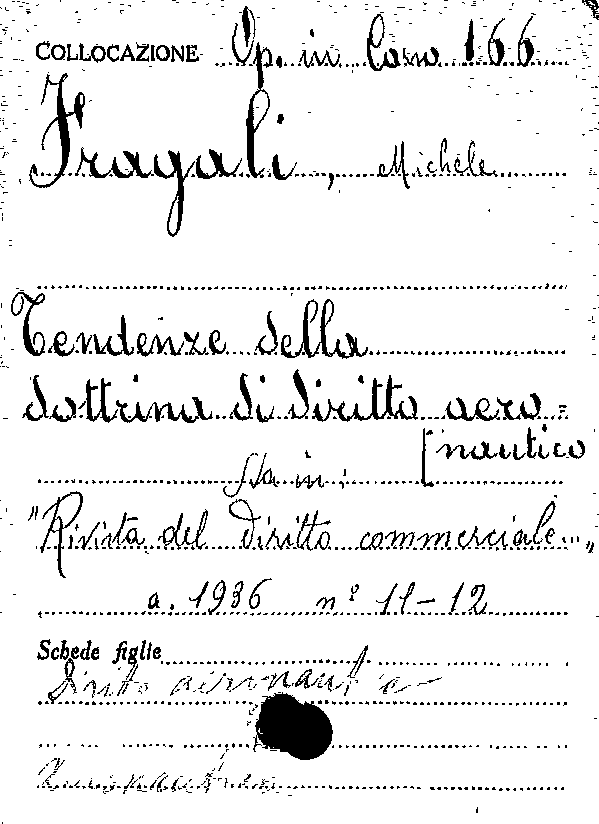 COLLOCAZIONE Op. in Caso 166
Fragali, Michele
Tendenze della
dottrina di diritto aero=
[nautico
Sta in:
"Rivista del diritto commerciale..."
a. 1936 nº 11-12
Schede figlie